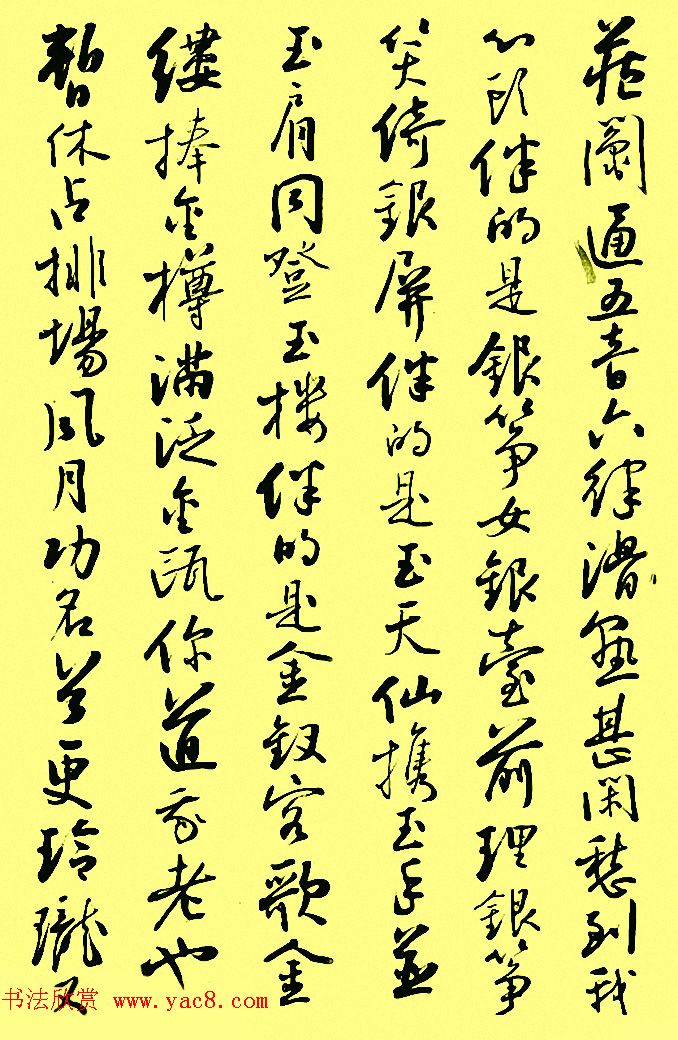 藏鬮通五音六律滑熟甚閑愁到我
心頭伴的是銀筝女銀臺前理銀筝
笑倚銀屏伴的是玉天仙携玉手並
玉肩同登玉楼伴的是金釵客歌金
縷捧金樽滿泛金甌你道我老也
暫休占排場風月功名首更玲瓏又
书法欣赏 www.yac8.com